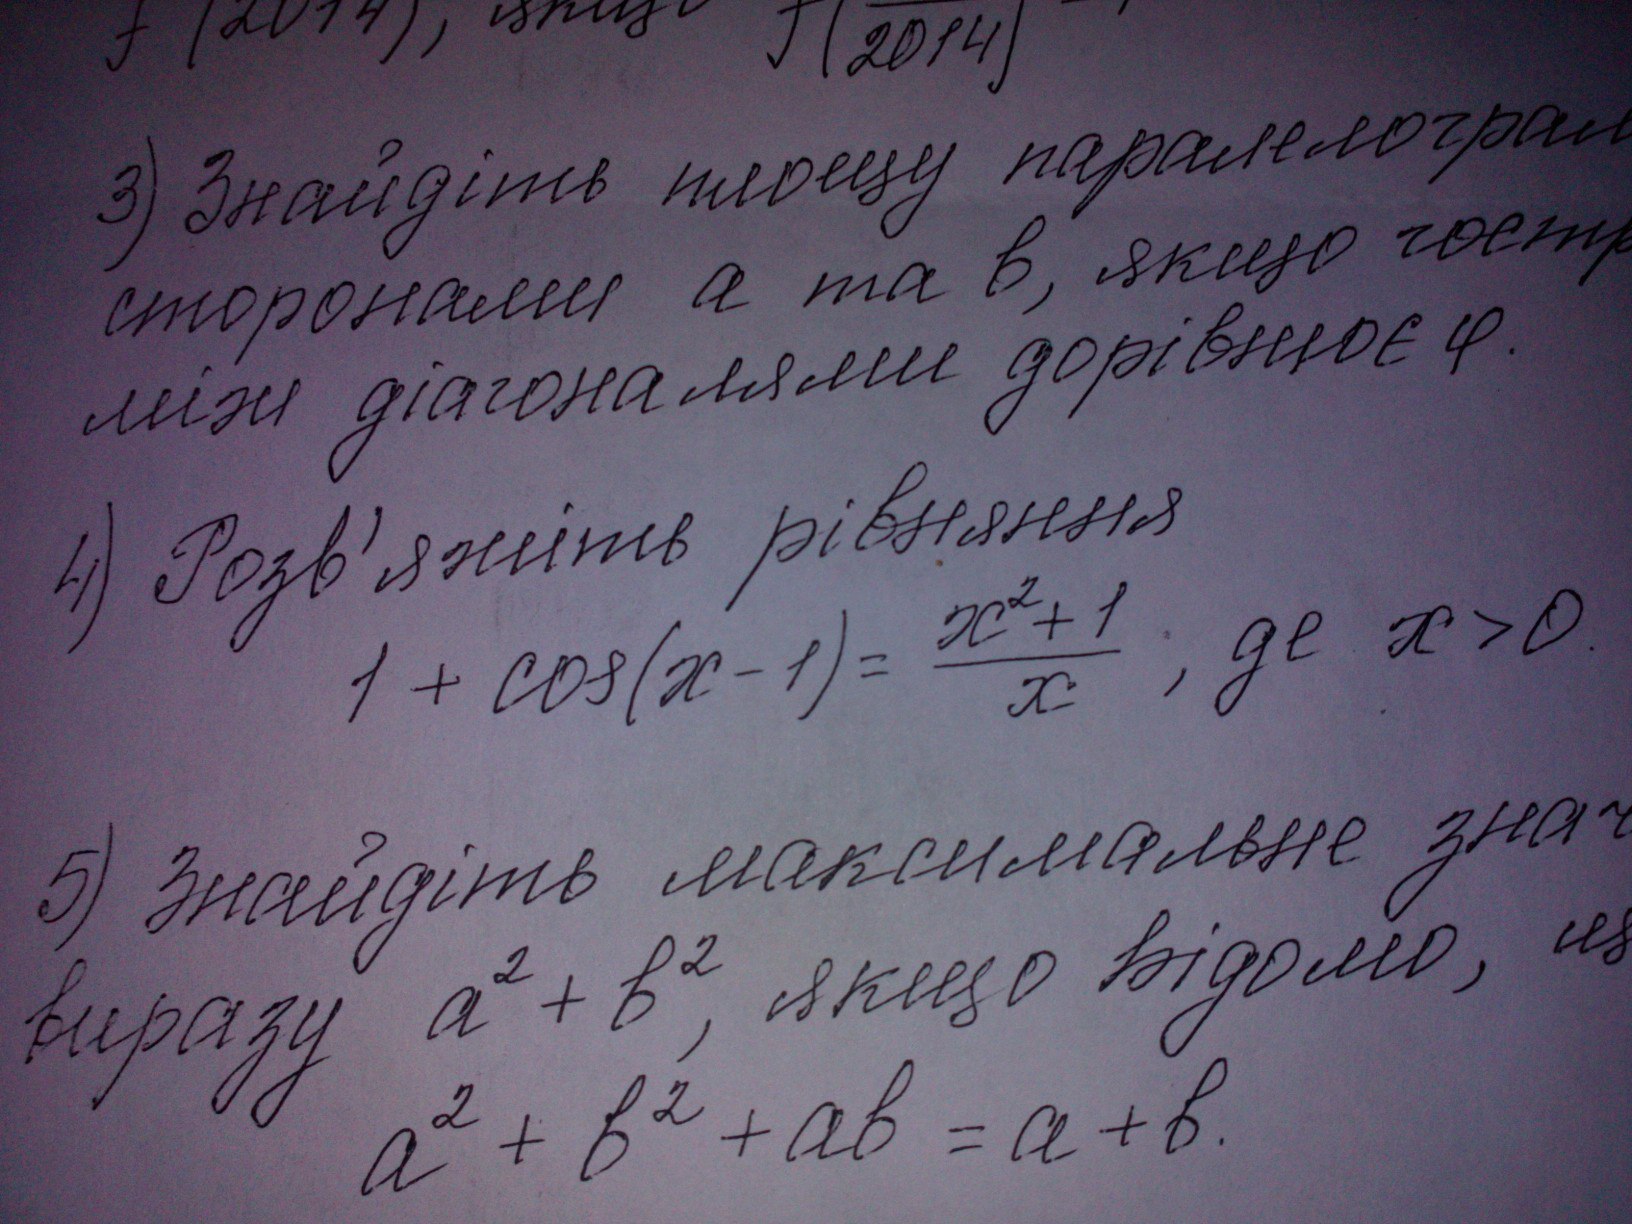 f (2014), якщо f(2014)
3) Знайдіть площу паралелограм
сторонами а та в, якщо гостр
між діагоналями дорівнює φ.
4) Розв'яжіть рівняння
1 + cos(x - 1) = (x² + 1)/x, де x > 0.
5) Знайдіть максимальне знач
виразу a² + b², якщо відомо,
a² + b² + ab = a + b.